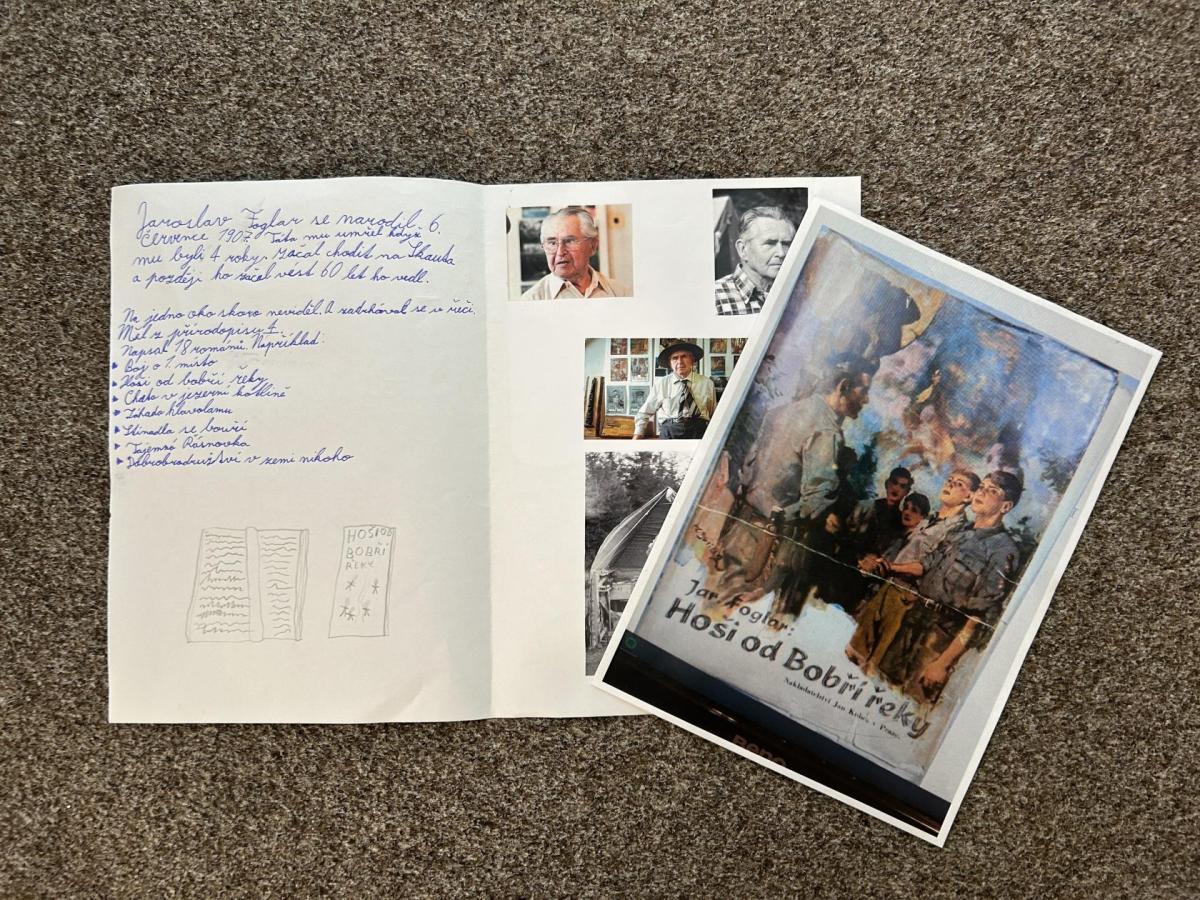 Jaroslav Foglar se narodil 6.
Července 1907. Táta mu umřel když
mu byli 4 roky. Začal chodit na Skauta
a později ho začal vést 60 let ho vedl.
Na jedno oko skoro neviděl. A zadrhával se v řeči.
Měl z přírodopisu 4.
Napsal 18 románů. Například:
Boj o 1. místo
Hoši od bobří řeky
Chata v jezerní kotlině
Záhada hlavolamu
Stínadla se bouří
Tajemná Řásnovka
Dobrobrodružství v zemi nikoho
HOŠI OD
BOBŘÍ
ŘEKY
Jar. Foglar:
Hoši od Bobří řeky
Nakladatelství Jan Kobes v Praze.